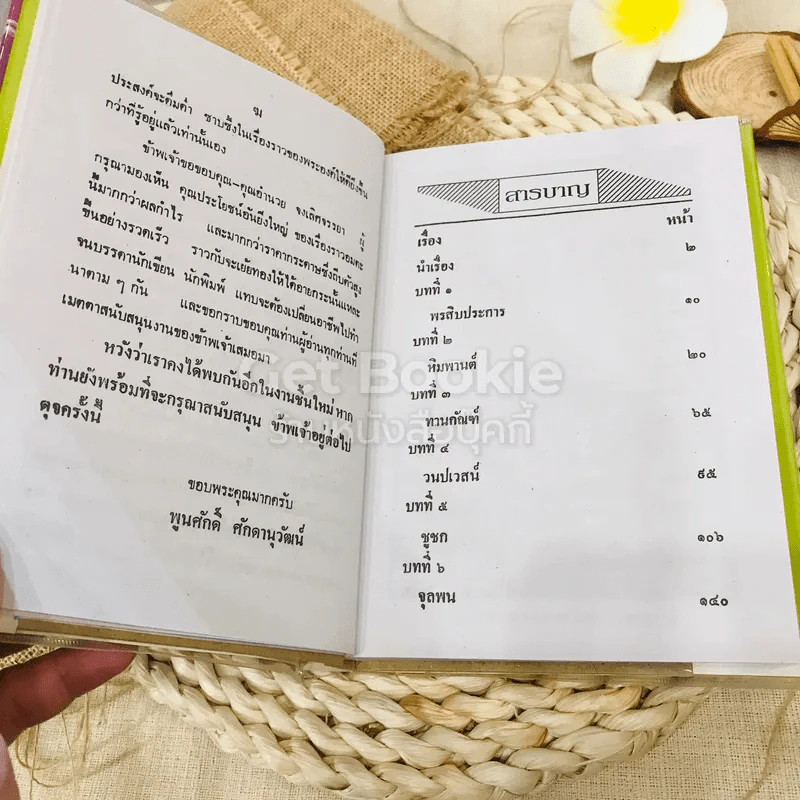 ฆ
ประสงค์จะดื่มด่ำ ซาบซึ้งในเรื่องราวของพระองค์ให้ดียิ่งขึ้น
กว่าที่รู้อยู่แล้วเท่านั้นเอง
ข้าพเจ้าขอขอบคุณ-คุณอำนวย จงเลิศจรรยา ผู้
กรุณามองเห็น คุณประโยชน์อันยิ่งใหญ่ ของเรื่องราวอมตะ
นี้มากกว่าผลกำไร และมากกว่าราคากระดาษซึ่งถีบตัวสูง
ขึ้นอย่างรวดเร็ว ราวกับจะเย้ยท้องให้ได้อายกระนั้นแหละ
จนบรรดานักเขียน นักพิมพ์ แทบจะต้องเปลี่ยนอาชีพไปทำ
นาตาม ๆ กัน และขอกราบขอบคุณท่านผู้อ่านทุกท่านที่
เมตตาสนับสนุนงานของข้าพเจ้าเสมอมา
หวังว่าเราคงได้พบกันอีกในงานชิ้นใหม่ หาก
ท่านยังพร้อมที่จะกรุณาสนับสนุน ข้าพเจ้าอยู่ต่อไป
ดุจครั้งนี้
ขอบพระคุณมากครับ
พูนศักดิ์ ศักดานุวัฒน์
สารบาญ
เรื่อง หน้า
นำเรื่อง ๒
บทที่ ๑
พรสิบประการ ๑๐
บทที่ ๒
หิมพานต์ ๒๐
บทที่ ๓
ทานกัณฑ์ ๖๕
บทที่ ๔
วนปเวสน์ ๙๕
บทที่ ๕
ชูชก ๑๐๖
บทที่ ๖
จุลพน ๑๔๐
Get Bookie
ร้านหนังสือบุคกี้